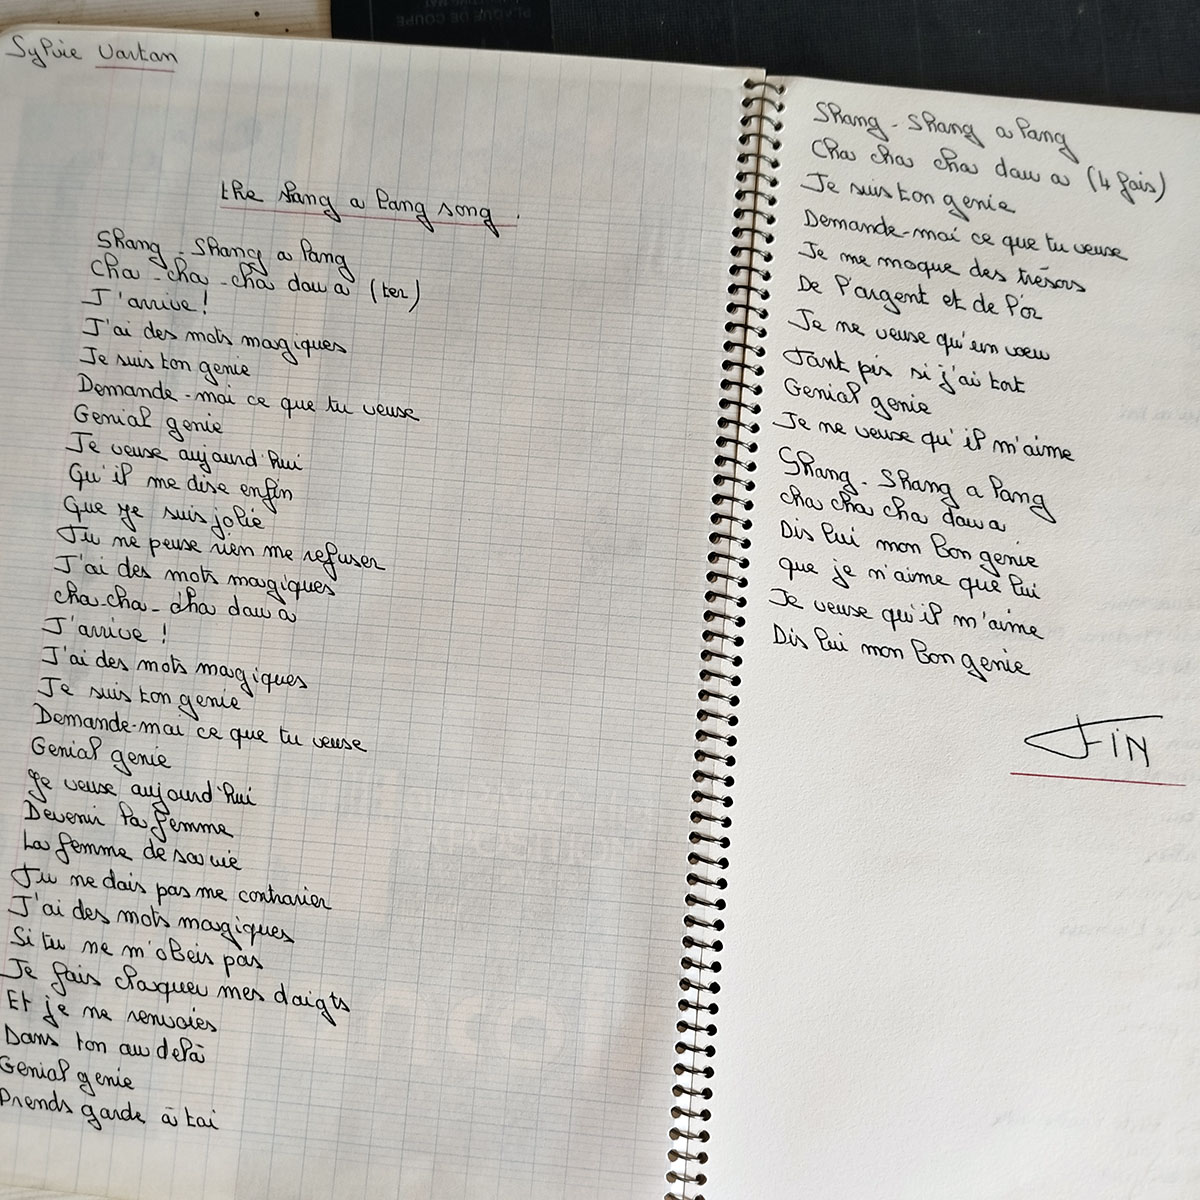 PLAQUE DE COUPE
Sylvie Vartan
the shang a lang song
Shang - Shang a lang
Cha - cha - cha dawa (ter)
J'arrive !
J'ai des mots magiques
Je suis ton genie
Demande-moi ce que tu veuse
Genial genie
Je veuse aujourd'hui
Qu'il me dise enfin
Que je suis jolie
Tu ne peuse rien me refuser
J'ai des mots magiques
cha-cha-cha dawa
J'arrive !
J'ai des mots magiques
Je suis ton genie
Demande-moi ce que tu veuse
Genial genie
Je veuse aujourd'hui
Devenir la femme
La femme de sa vie
Tu ne dois pas me contrarier
J'ai des mots magiques
Si tu ne m'obeis pas
Je fais claquer mes doigts
Et je ne renvoies
Dans ton au delà
Genial genie
Prends garde à toi
Shang - Shang a lang
Cha cha cha dawa (4 fois)
Je suis ton genie
Demande-moi ce que tu veuse
Je me moque des trésors
De l'argent et de l'or
Je ne veuse qu'un voeu
Tant pis si j'ai tort
Genial genie
Je ne veuse qu'il m'aime
Shang - Shang a lang
cha cha cha dawa
Dis lui mon bon genie
que je n'aime que lui
Je veuse qu'il m'aime
Dis lui mon bon genie
FIN